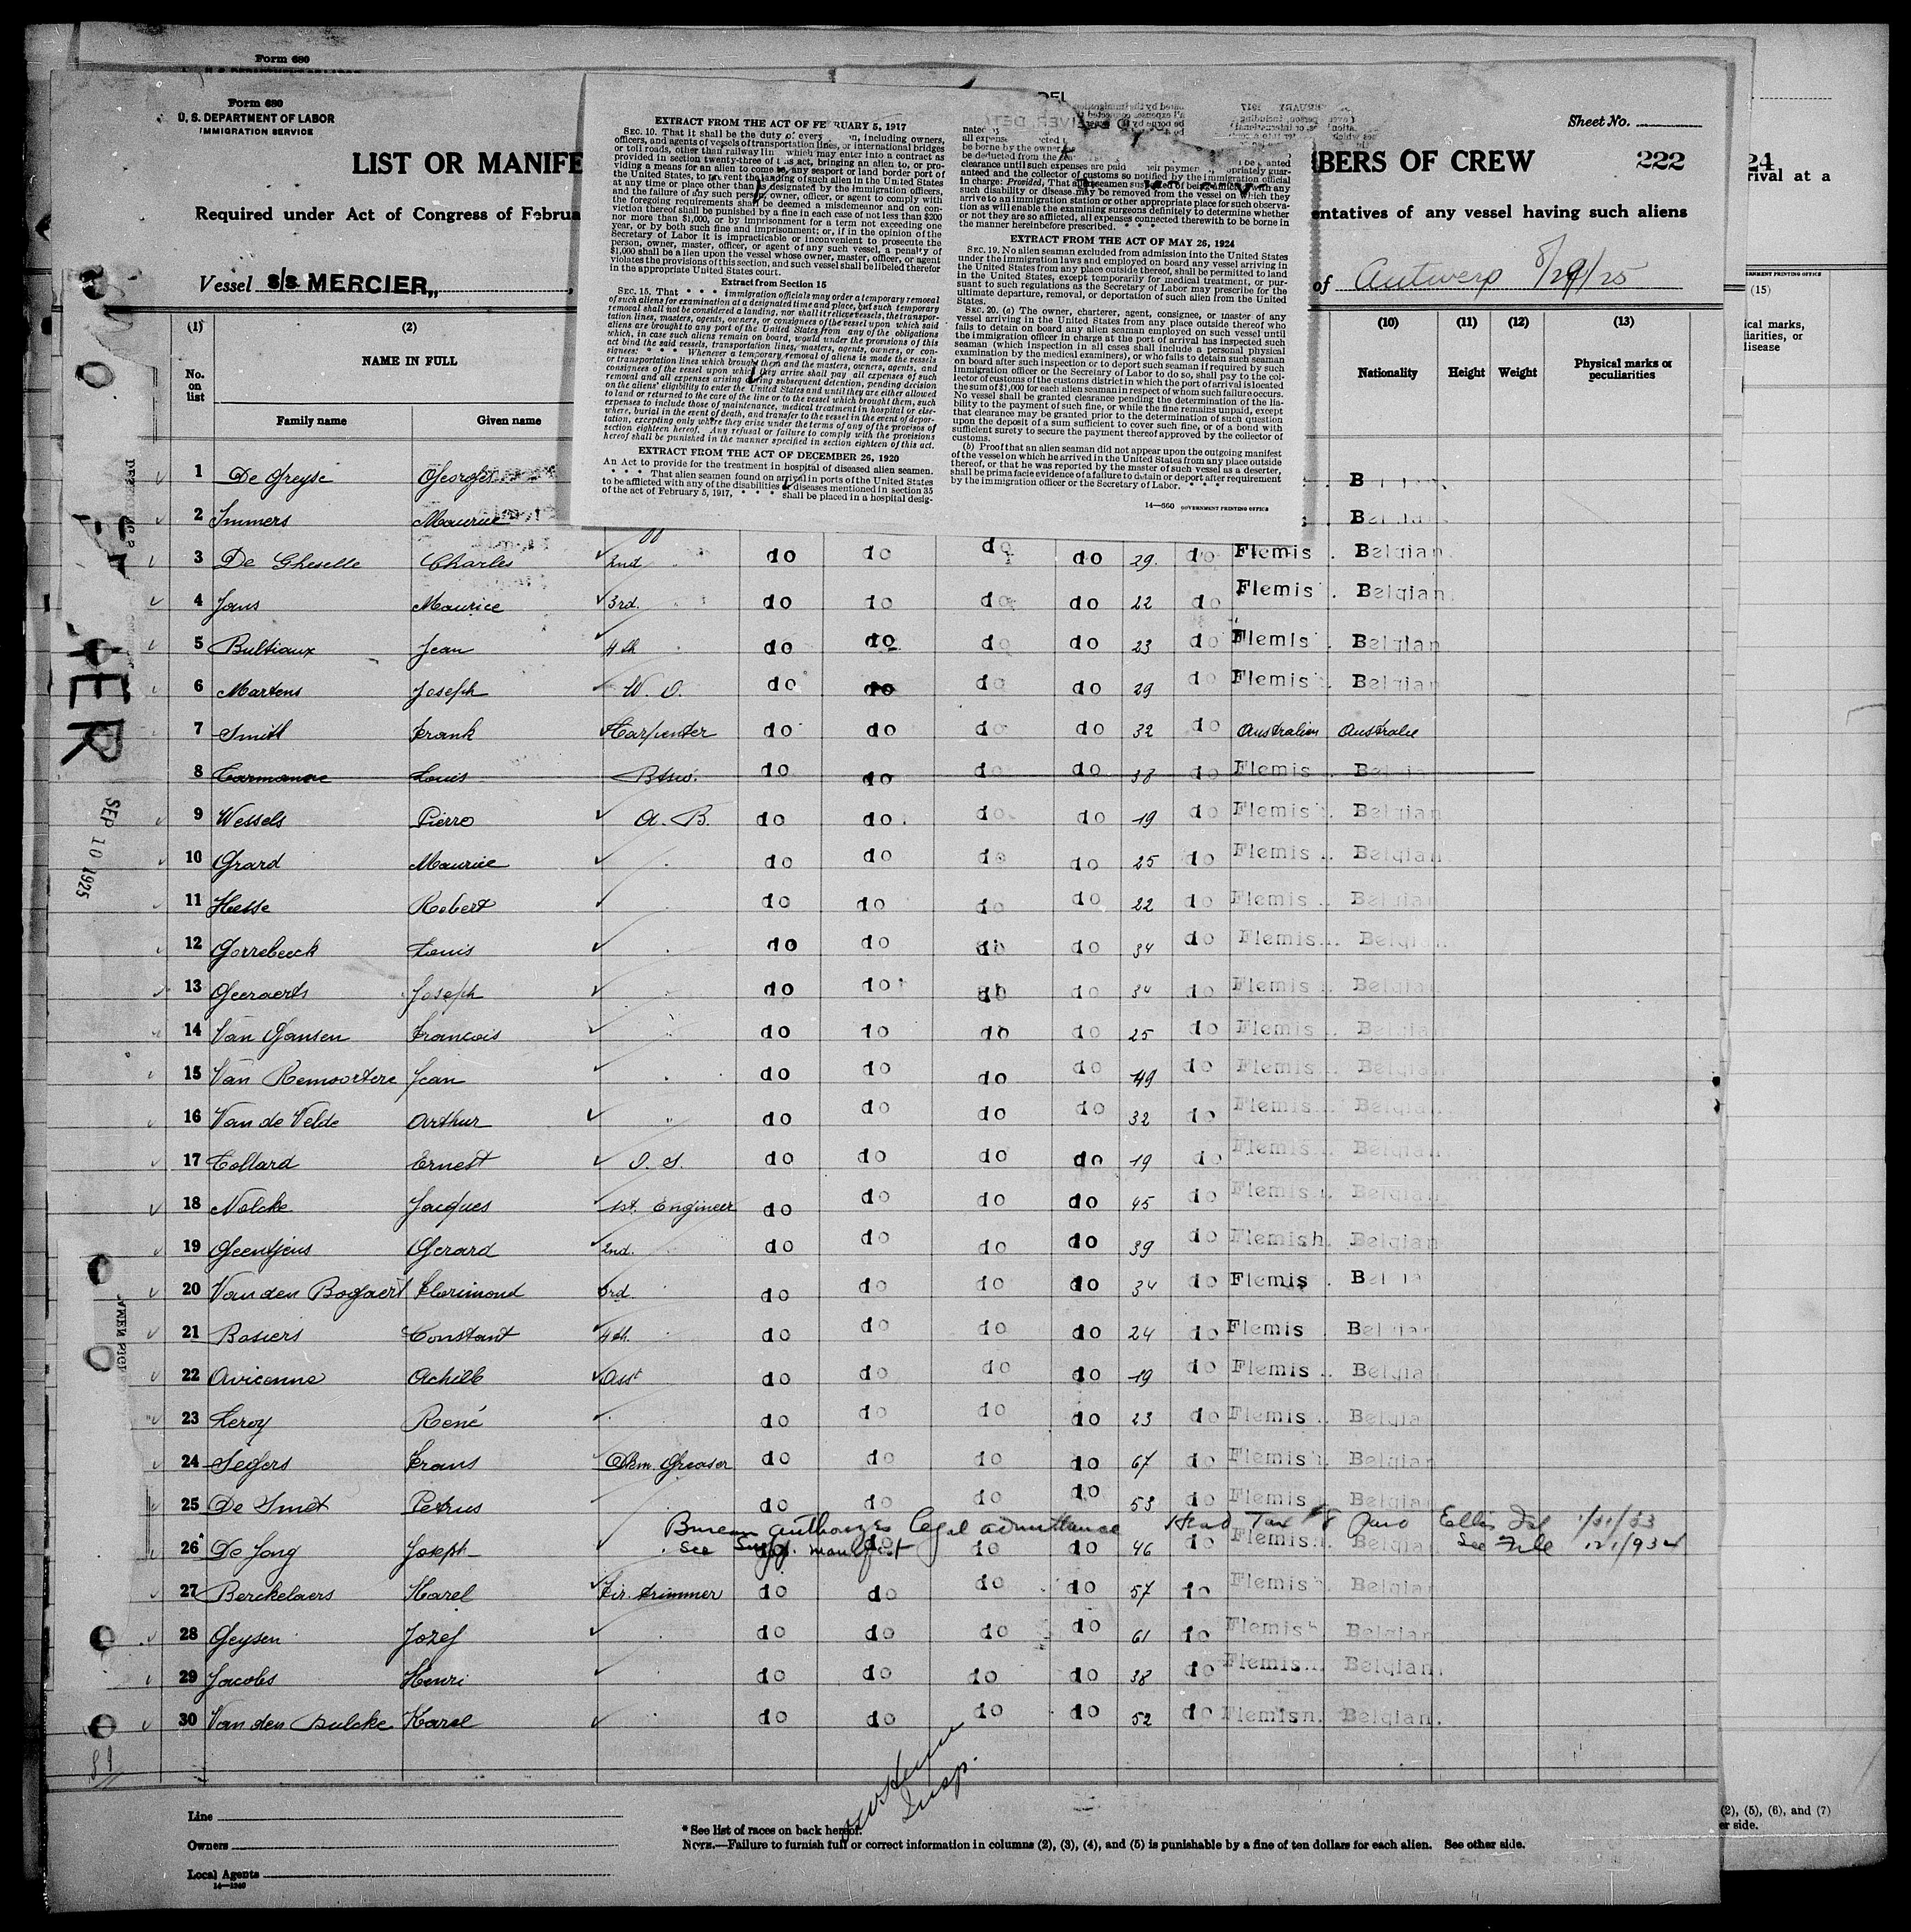 Form 680
Form 680
U. S. DEPARTMENT OF LABOR
IMMIGRATION SERVICE
Sheet No.
LIST OR MANIFE
BERS OF CREW 222
24
rival at a
Required under Act of Congress of Februa
entatives of any vessel having such aliens
Vessel S/S MERCIER,,
of Antwerp 8/29/25
EXTRACT FROM THE ACT OF FE RUARY 5, 1917
SEC. 10. That it shall be the duty of every n, including owners,
officers, and agents of vessels of transportation lines, or international bridges
or toll roads, other than railway lin which may enter into a contract as
provided in section twenty-three of t is act, bringing an alien to, or pro-
viding a means for an alien to come to, any seaport or land border port of
the United States, to prevent the landing of such alien in the United States
at any time or place other than designated by the immigration officers,
and the failure of any such person, owner, officer, or agent to comply with
the foregoing requirements shall be deemed a misdemeanor and on con-
viction thereof shall be punished by a fine in each case of not less than $200
nor more than $1,000, or by imprisonment for a term not exceeding one
year, or by both such fine and imprisonment; or, if in the opinion of the
Secretary of Labor it is impracticable or inconvenient to prosecute the
person, owner, master, officer, or agent of any such vessel, a penalty of
$1,000 shall be a lien upon the vessel whose owner, master, officer, or agent
violates the provisions of this section, and such vessel shall be libeled therefor
in the appropriate United States court.
Extract from Section 15
SEC. 15. That * * * immigration officials may order a temporary removal
of such aliens for examination at a designated time and place, but such temporary
removal shall not be considered a landing, nor shall it relieve vessels, the transpor-
tation lines, masters, agents, owners, or consignees of the vessel upon which said
aliens are brought to any port of the United States from any of the obligations
which, in case such aliens remain on board, would under the provisions of this
act bind the said vessels, transportation lines, masters, agents, owners, or con-
signees: * * * Whenever a temporary removal of aliens is made the vessels
or transportation lines which brought them and the masters, owners, agents, and
consignees of the vessel upon which they arrive shall pay all expenses of such
removal and all expenses arising during subsequent detention, pending decision
on the aliens' eligibility to enter the United States and until they are either allowed
to land or returned to the care of the line or to the vessel which brought them, such
expenses to include those of maintenance, medical treatment in hospital or else-
where, burial in the event of death, and transfer to the vessel in the event of depor-
tation, excepting only where they arise under the terms of any of the provisos of
section eighteen hereof. Any refusal or failure to comply with the provisions
hereof shall be punished in the manner specified in section eighteen of this act.
EXTRACT FROM THE ACT OF DECEMBER 26, 1920
An Act to provide for the treatment in hospital of diseased alien seamen.
* * * * That alien seamen found on arrival in ports of the United States
to be afflicted with any of the disabilities or diseases mentioned in section 35
of the act of February 5, 1917, * * * shall be placed in a hospital desig-
nated
all expense
be borne by the owner
be deducted from the
clearance until such expenses are paid eir paymen opriately guar-
anteed and the collector of customs so notified by the immigration official
in charge: Provided, That alien seamen suspected of being afflicted with any
such disability or disease may be removed from the vessel on which they
arrive to an immigration station or other appropriate place for such observa-
tion as will enable the examining surgeons definitely to determine whether
or not they are so afflicted, all expenses connected therewith to be borne in
the manner hereinbefore prescribed. * * *
EXTRACT FROM THE ACT OF MAY 26, 1924
SEC. 19. No alien seaman excluded from admission into the United States
under the immigration laws and employed on board any vessel arriving in
the United States from any place outside thereof, shall be permitted to land
in the United States, except temporarily for medical treatment, or pur-
suant to such regulations as the Secretary of Labor may prescribe for the
ultimate departure, removal, or deportation of such alien from the United
States.
SEC. 20. (a) The owner, charterer, agent, consignee, or master of any
vessel arriving in the United States from any place outside thereof who
fails to detain on board any alien seaman employed on such vessel until
the immigration officer in charge at the port of arrival has inspected such
seaman (which inspection in all cases shall include a personal physical
examination by the medical examiners), or who fails to detain such seaman
on board after such inspection or to deport such seaman if required by such
immigration officer or the Secretary of Labor to do so, shall pay to the col-
lector of customs of the customs district in which the port of arrival is located
the sum of $1,000 for each alien seaman in respect of whom such failure occurs.
No vessel shall be granted clearance pending the determination of the lia-
bility to the payment of such fine, or while the fine remains unpaid, except
that clearance may be granted prior to the determination of such question
upon the deposit of a sum sufficient to cover such fine, or of a bond with
sufficient surety to secure the payment thereof approved by the collector of
customs.
(b) Proof that an alien seaman did not appear upon the outgoing manifest
of the vessel on which he arrived in the United States from any place outside
thereof, or that he was reported by the master of such vessel as a deserter,
shall be prima facie evidence of a failure to detain or deport after requirement
by the immigration officer or the Secretary of Labor. * * *
14—660 GOVERNMENT PRINTING OFFICE
(1) (2) (10) (11) (12) (13) (15)
No. on list
NAME IN FULL
Family name Given name
Nationality Height Weight Physical marks or peculiarities
ical marks,
liarities, or
disease
1 De Greyse Georges B
2 Immers Maurice Bel ian
3 De Gheselle Charles 2nd do do do do 29. do Flemis . Belgian.
4 Jans Maurice 3rd. do do do do 22 do Flemis . Belgian.
5 Bultiaux Jean 4th do do do do 23 do Flemis . Belgian
6 Martens Joseph W. O. do do do do 29 do Flemis . Belgian
7 Smith Frank Carpenter do do do do 32 do Australien Australie
8 Louis Btsw. do do do do 38 do Flemis . Bel
9 Wessels Pierre A. B. do do do do 19 do Flemish. Belgian
10 Grard Maurice do do do do 25 do Flemis . Belgian
11 Hesse Robert do do do do 22 do Flemis . Belgian
12 Gorrebeeck Louis do do do do 34 do Flemis.. Belgian.
13 Geeraerts Joseph do do do do 34 do Flemis . Belgian
14 Van Gansen Francois do do do do 25 do Flemis . Belgian
15 Van Remoortere Jean do do do do 49 do Flemis . Belgian
16 Van de Velde Arthur do do do do 32 do Flemis . Belgian
17 Collard Ernest O. S. do do do do 19 do Flemis . Belgian
18 Nolcke Jacques 1st. Engineer do do do do 45 do Flemis . Belgian
19 Geentjens Gerard 2nd. do do do do 39 do Flemish. Belgian
20 Van den Bogaert Florimond 3rd do do do do 34 do Flemis . Bel ia
21 Basiers Constant 4th. do do do do 24 do Flemis Bel ian
22 Avicenne Achille Asst do do do do 19 do Flemis . Belgia
23 Leroy René do do do do 23 do Flemis . Belgia
24 Segers Frans Dkm. Greaser do do do do 67 do Flemish. Belgian
25 De Smet Petrus do do do do 53 do Flemis . Belgian
Bureau authorizes legal admittance Head Tax $8 Paid Ellis Isl 1/31/33
26 De Jong Joseph See Supp. manifest do do do 46 do Flemis . Belgian See File
27 Berckelaers Karel Fir. trimmer do do do do 57 do Flemish. Belgian
28 Geysen Jozef do do do do 61 do Flemish Belgian
29 Jacobs Henri do do do do 38 do Flemis.. Belgian.
30 Van den Bulcke Karel do do do do 52 do Flemish. Belgian.
SEP 10 1925
Insp.
Line
Owners
Local Agents
14—1240
* See list of races on back hereof.
NOTE.—Failure to furnish full or correct information in columns (2), (3), (4), and (5) is punishable by a fine of ten dollars for each alien. See other side.
(2), (5), (6), and (7)
er side.